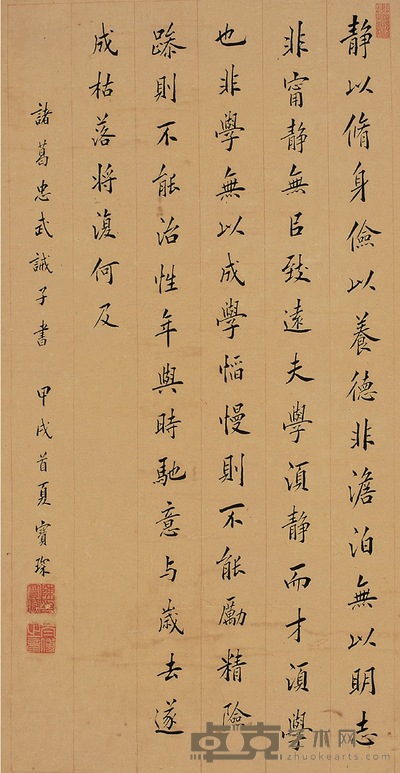 靜以脩身儉以養德非澹泊無以明志
非甯靜無㠯致遠夫學須靜而才須學
也非學無以成學慆慢則不能勵精險
躁則不能治性年與時馳意与歲去遂
成枯落將復何及
諸葛忠武誡子書 甲戌首夏寶琛
卓克艺术网
www.zhuokearts.com